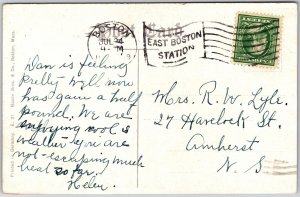 Post Card
BOSTON
JUL 24
EAST BOSTON
STATION
Dan is feeling
pretty well now
has gained a half
pound. We are
enjoying cool
weather you are
not escaping much
heat so far.
Helen.
Mrs. R. W. Lyle.
27 Havelock St.
Amherst
N. S.